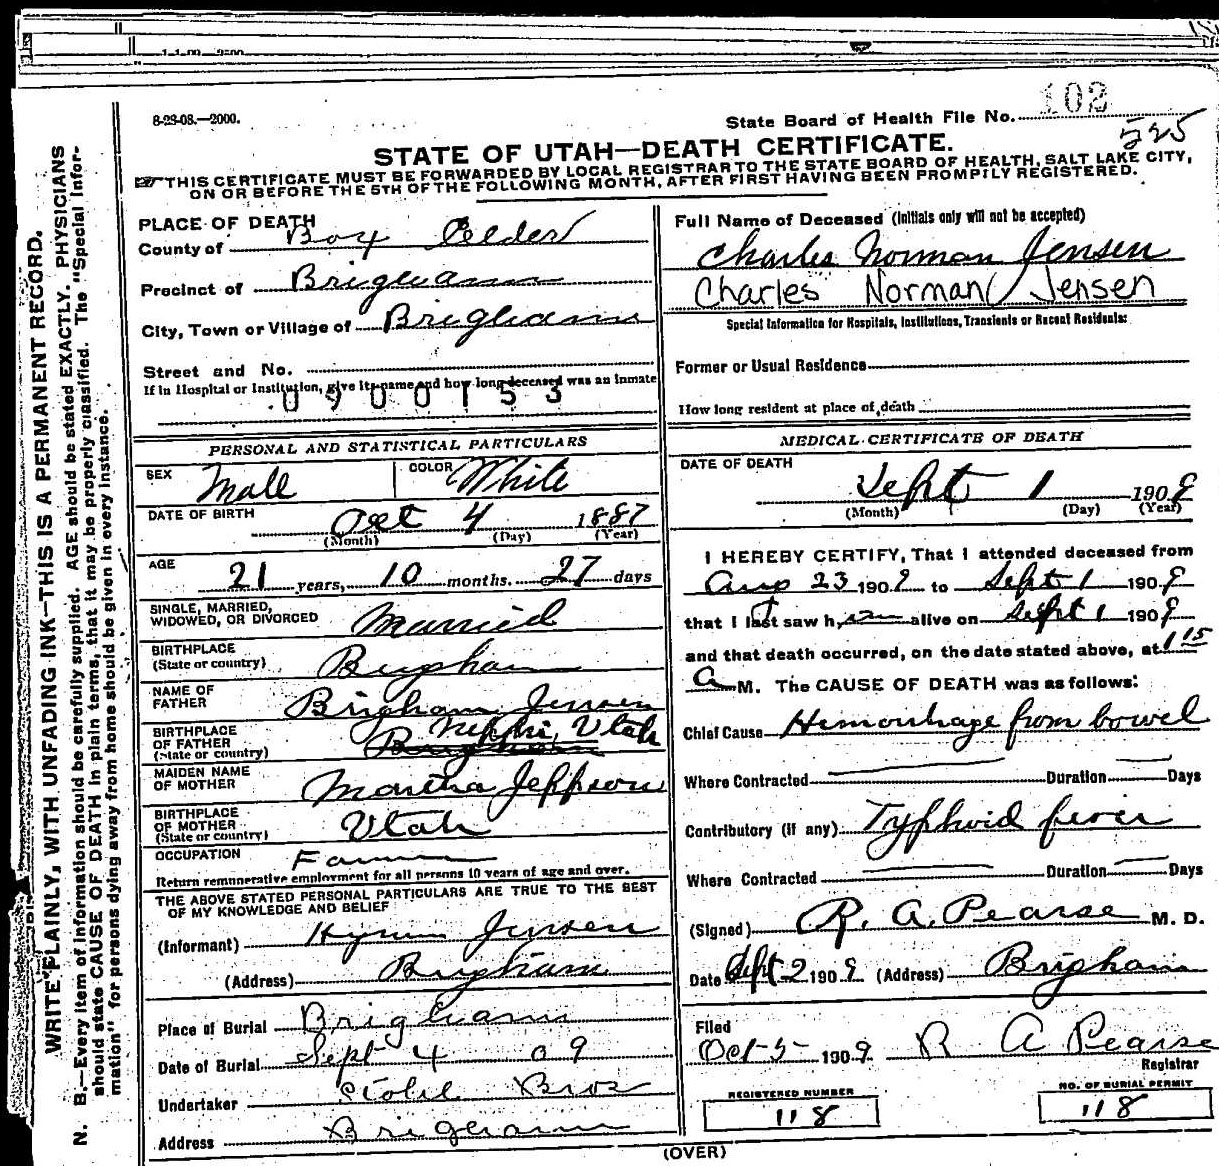 8-23-08.—2000.
State Board of Health File No. 102
525
STATE OF UTAH—DEATH CERTIFICATE.
THIS CERTIFICATE MUST BE FORWARDED BY LOCAL REGISTRAR TO THE STATE BOARD OF HEALTH, SALT LAKE CITY,
ON OR BEFORE THE 5TH OF THE FOLLOWING MONTH, AFTER FIRST HAVING BEEN PROMPTLY REGISTERED.
WRITE PLAINLY, WITH UNFADING INK—THIS IS A PERMANENT RECORD.
N. B.—Every item of information should be carefully supplied. AGE should be stated EXACTLY. PHYSICIANS
should state CAUSE OF DEATH in plain terms, that it may be properly classified. The "Special Infor-
mation" for persons dying away from home should be given in every instance.
PLACE OF DEATH
County of Box Elder
Precinct of Brigham
City, Town or Village of Brigham
Street and No.
If in Hospital or Institution, give its name and how long deceased was an inmate
0900153
PERSONAL AND STATISTICAL PARTICULARS
SEX Male COLOR White
DATE OF BIRTH Oct 4 1887
(Month) (Day) (Year)
AGE 21 years, 10 months. 27 days
SINGLE, MARRIED,
WIDOWED, OR DIVORCED Married
BIRTHPLACE
(State or country) Brigham
NAME OF
FATHER Brigham Jensen
BIRTHPLACE
OF FATHER Nephi, Utah
(State or country) Brigham
MAIDEN NAME
OF MOTHER Martha Jeppson
BIRTHPLACE
OF MOTHER Utah
(State or country)
OCCUPATION Farmer
Return remunerative employment for all persons 10 years of age and over.
THE ABOVE STATED PERSONAL PARTICULARS ARE TRUE TO THE BEST
OF MY KNOWLEDGE AND BELIEF
(Informant) Hyrum Jensen
(Address) Brigham
Place of Burial Brigham
Date of Burial Sept 4 09
Undertaker Stohl Bros
Address Brigham
Full Name of Deceased (Initials only will not be accepted)
Charles Norman Jensen
Charles Norman Jensen
Special Information for Hospitals, Institutions, Transients or Recent Residents:
Former or Usual Residence
How long resident at place of death
MEDICAL CERTIFICATE OF DEATH
DATE OF DEATH
Sept 1 1909
(Month) (Day) (Year)
I HEREBY CERTIFY, That I attended deceased from
Aug 23 1909 to Sept 1 1909
that I last saw him alive on Sept 1 1909
and that death occurred, on the date stated above, at 1 15
A M. The CAUSE OF DEATH was as follows:
Chief Cause Hemorrhage from bowel
Where Contracted Duration Days
Contributory (if any) Typhoid fever
Where Contracted Duration Days
(Signed) R. A. Pearse M. D.
Date Sept 2 1909 (Address) Brigham
Filed
Oct 5 1909 R A Pearse
Registrar
REGISTERED NUMBER
118
NO. OF BURIAL PERMIT
118
(OVER)